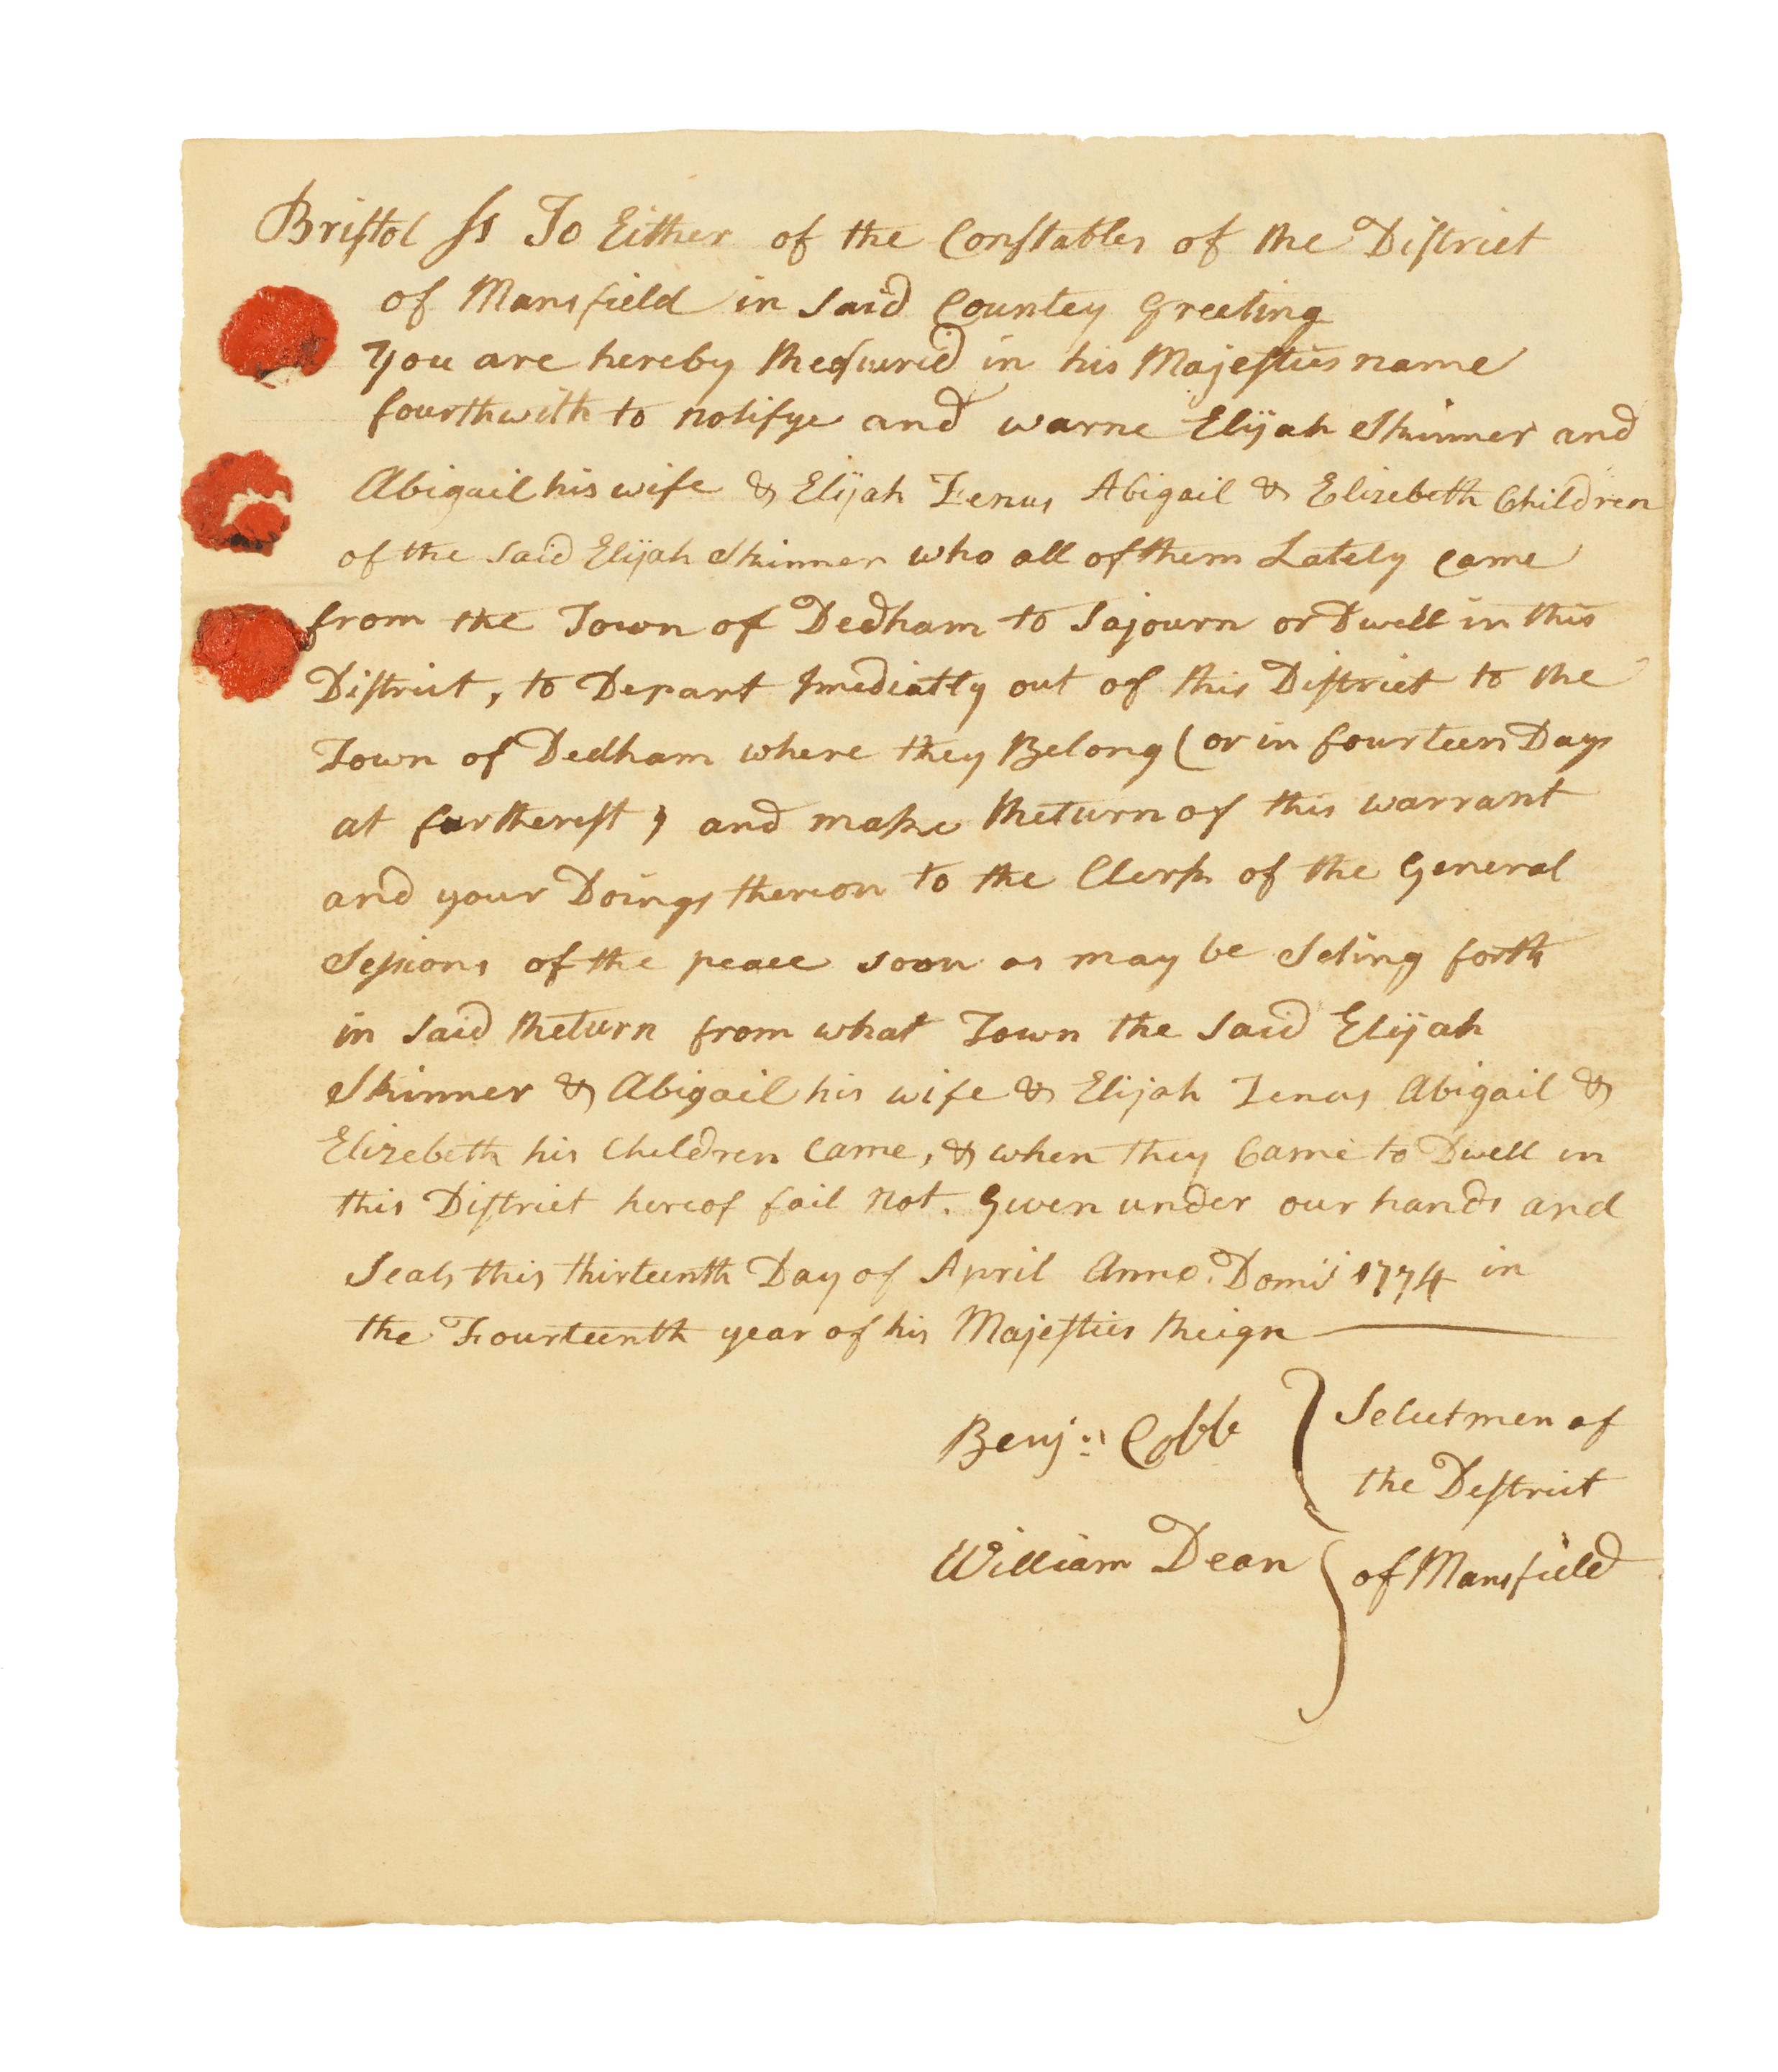 Bristol Ss To Either of the Constables of the District
of Mansfield in Said Countey Greeting
You are hereby Requierid in his Majesties name
fourthwith to notifye and warne Elijah Skinner and
Abigail his wife & Elijah Zenus Abigail & Elizebeth Children
of the Said Elijah Skinner who all of them Lately Came
from the Town of Dedham to Sojourn or Dwell in this
District, to Depart Imediatly out of this District to the
Town of Dedham where they Belong (or in fourteen Days
at furtherest) and make Return of this warrant
and your Doings thereon to the Clerk of the General
Sessions of the peace soon as may be Seting forth
in Said Return from what Town the Said Elijah
Skinner & Abigail his wife & Elijah Zenus Abigail &
Elizebeth his Children Came, & when they Came to Dwell in
this District hereof fail not. Given under our hands and
Seals this thirteenth Day of April Anno. Domi 1774 in
the Fourteenth year of his Majesties Reign
Benj:n Cobb
William Dean
Selectmen of
the District
of Mansfield